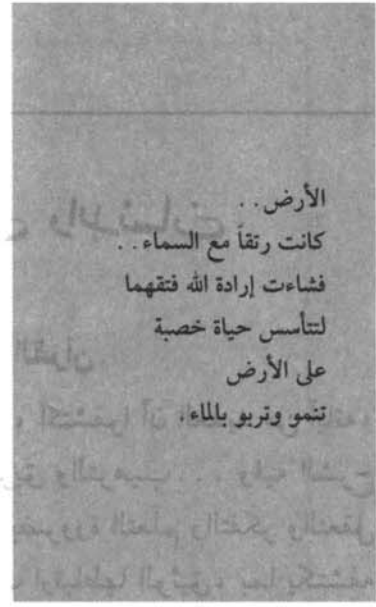 الأرض . .
كانت رتقاً مع السماء . .
فشاءت إرادة الله فتقهما
لتتأسس حياة خصبة
على الأرض
تنمو وتربو بالماء .